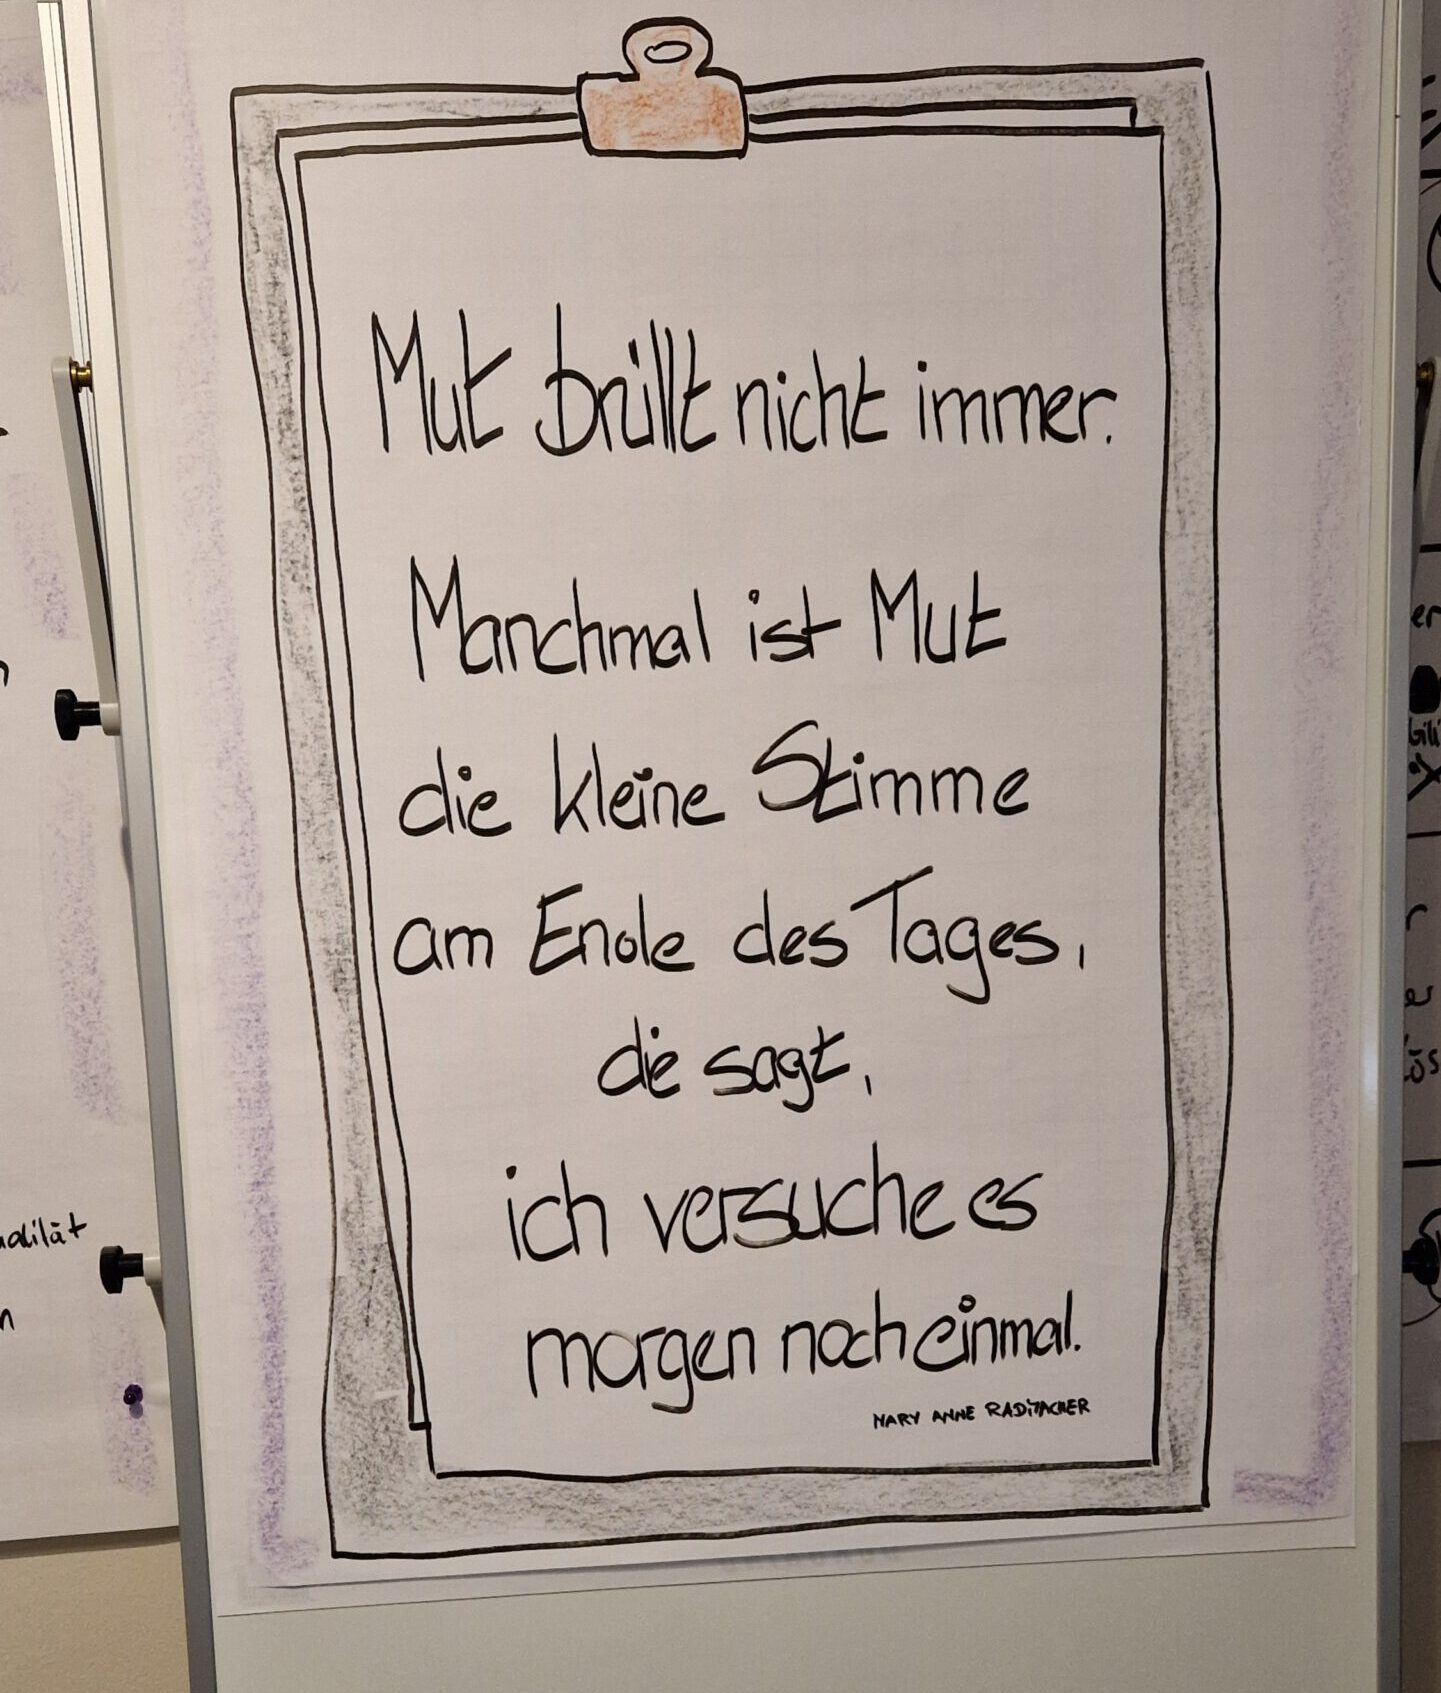 Mut brüllt nicht immer.
Manchmal ist Mut
die kleine Stimme
am Ende des Tages,
die sagt,
ich versuche es
morgen noch einmal.
MARY ANNE RADMACHER